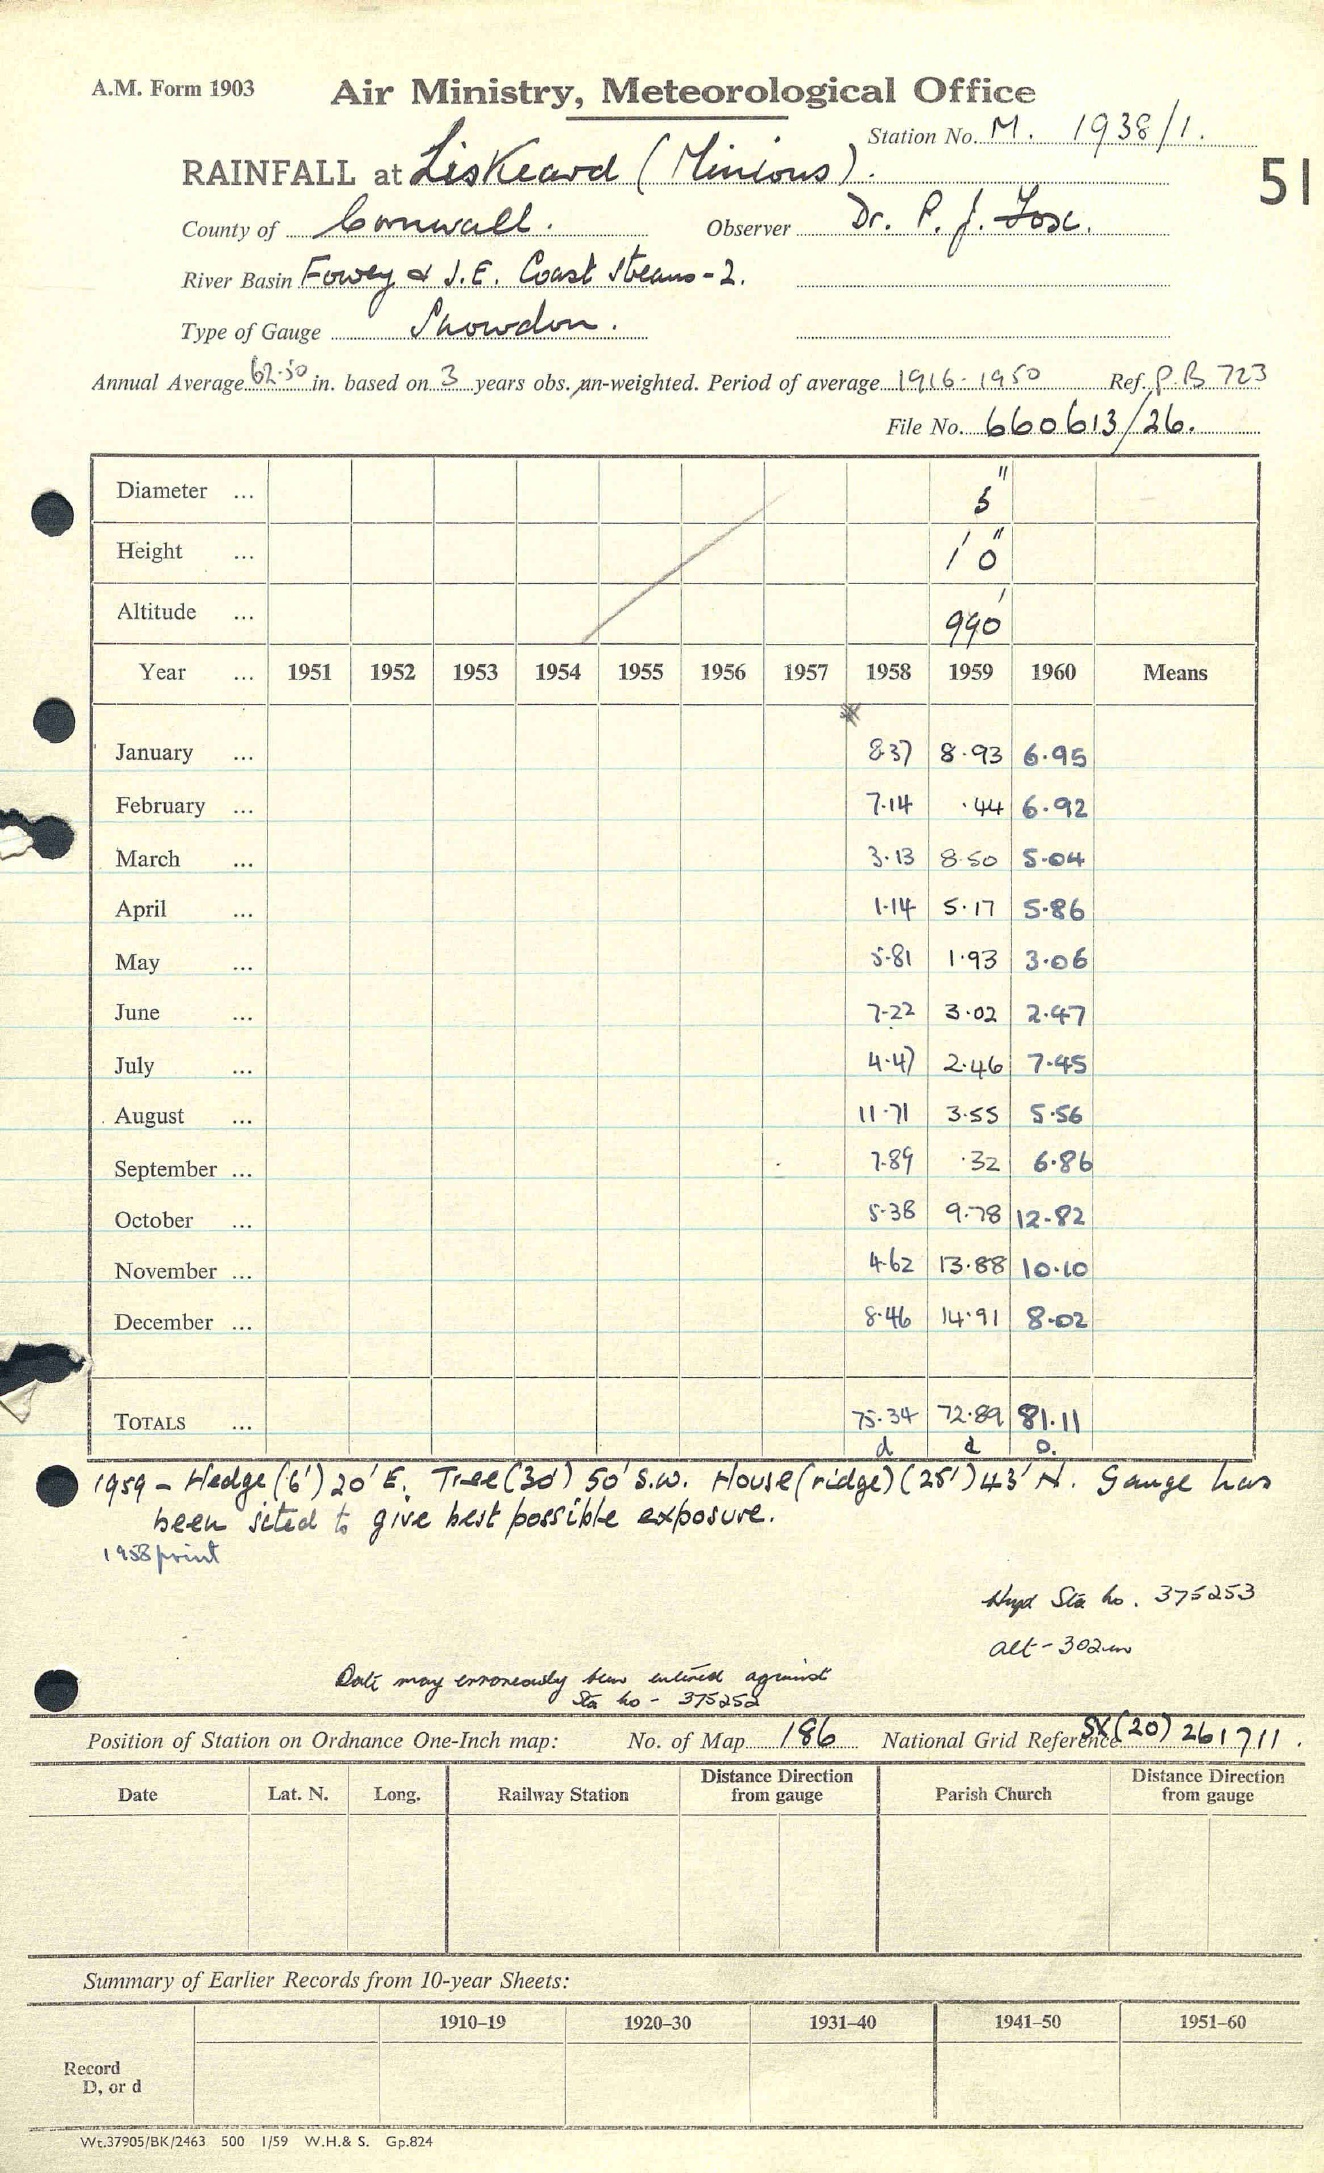 A.M. Form 1903 Air Ministry, Meteorological Office
Station No. M. 1938/1.
RAINFALL at Liskeard (Minions).
51
County of Cornwall. Observer Dr. P. J. Fox.
River Basin Fowey & S.E. Coast Streams-2.
Type of Gauge Snowdon.
Annual Average 62.50 in. based on 3 years obs. un-weighted. Period of average 1916-1950 Ref. P.B 723
File No. 660613/26.
Diameter ... 5"
Height ... 1' 0"
Altitude ... 990'
Year ... 1951 1952 1953 1954 1955 1956 1957 1958 1959 1960 Means
January ... 8.37 8.93 6.95
February ... 7.14 .44 6.92
March ... 3.13 8.50 5.04
April ... 1.14 5.17 5.86
May ... 5.81 1.93 3.06
June ... 7.22 3.02 2.47
July ... 4.47 2.46 7.45
August ... 11.71 3.55 5.56
September ... 7.89 .32 6.86
October ... 5.38 9.78 12.82
November ... 4.62 13.88 10.10
December ... 8.46 14.91 8.02
TOTALS ... 75.34 72.89 81.11
d d D.
1959 - Hedge (6') 20' E. Tree (30') 50' S.W. House (ridge) (25') 43' N. Gauge has
been sited to give best possible exposure.
1958 print
Hyd Sta no. 375253
alt - 302m
Data may erroneously been entered against
Sta no - 375252
Position of Station on Ordnance One-Inch map: No. of Map 186 National Grid Reference SX(20) 261711.
Date Lat. N. Long. Railway Station Distance Direction from gauge Parish Church Distance Direction from gauge
Summary of Earlier Records from 10-year Sheets:
1910–19 1920–30 1931–40 1941–50 1951–60
Record
D, or d
Wt.37905/BK/2463 500 1/59 W.H.& S. Gp.824